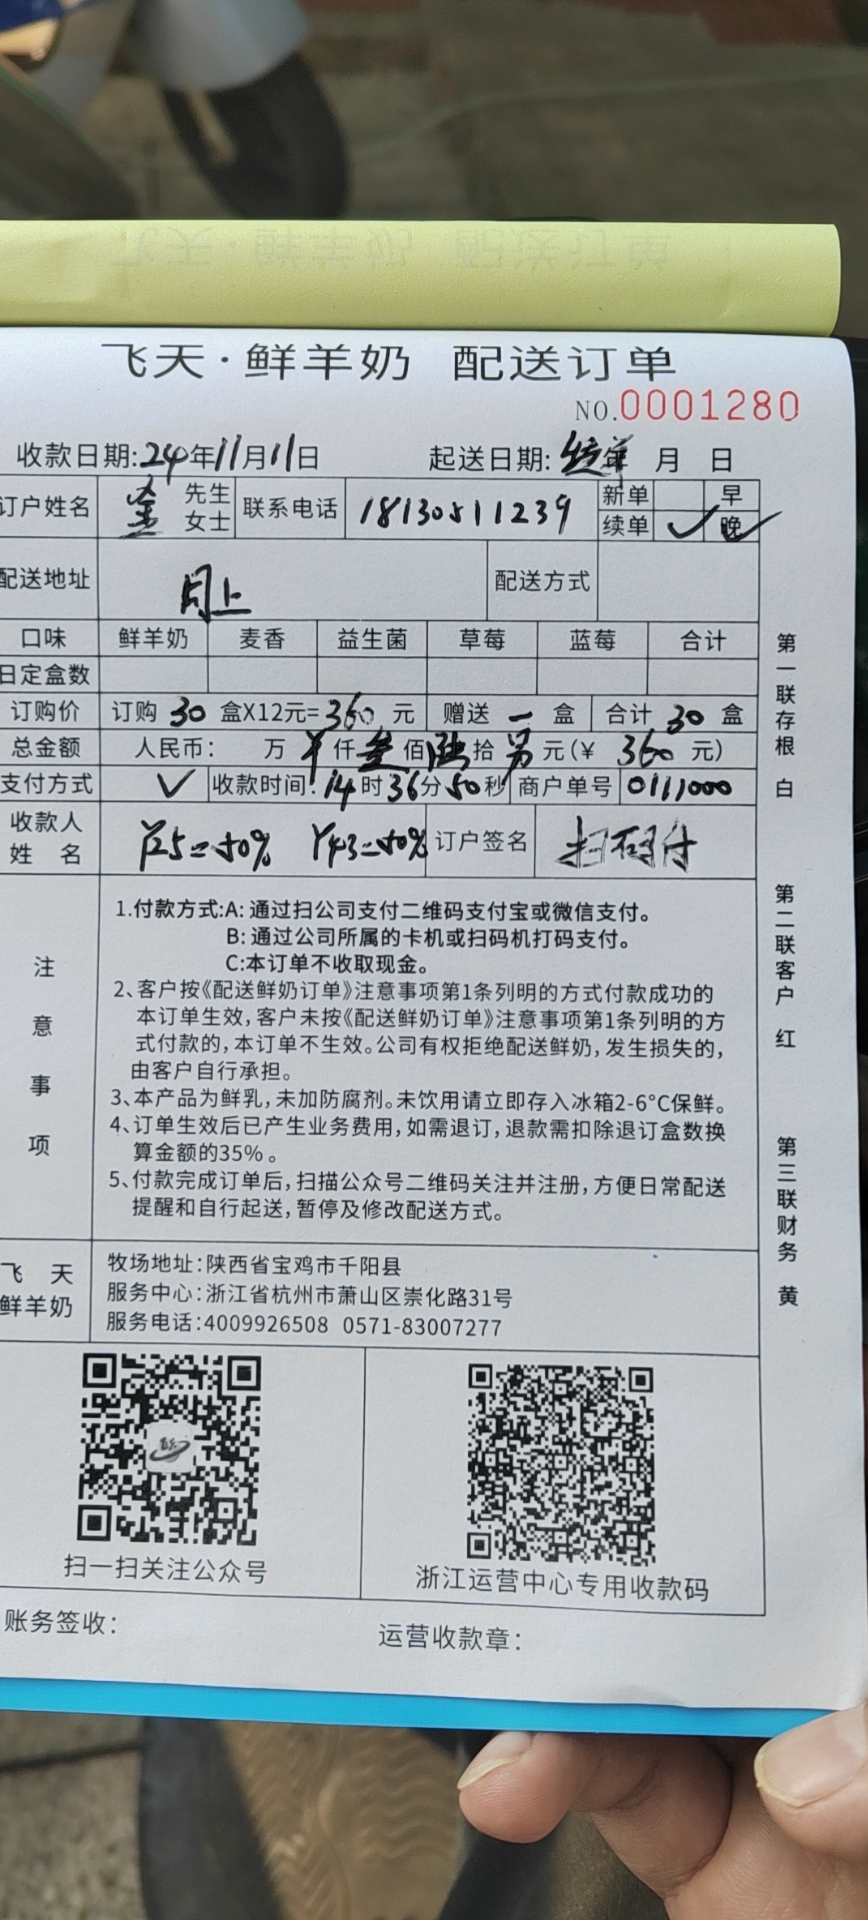 飞天·鲜羊奶 配送订单
NO.0001280
收款日期:24年11月11日 起送日期: 年 月 日
订户姓名 先生 女士 联系电话 18130511239 新单 早 续单 ✓ 晚
配送地址 同上 配送方式
口味 鲜羊奶 麦香 益生菌 草莓 蓝莓 合计
日定盒数
订购价 订购 30 盒X12元=360 元 赠送 一 盒 合计 30 盒
总金额 人民币: 万 仟 叁 佰 陆 拾 元(¥ 360 元)
支付方式 ✓ 收款时间:14时36分50秒 商户单号 0111000
收款人 姓名 Y25=50% Y43=50% 订户签名 扫码付
注意事项
1.付款方式:A: 通过扫公司支付二维码支付宝或微信支付。
B: 通过公司所属的卡机或扫码机打码支付。
C:本订单不收取现金。
2、客户按《配送鲜奶订单》注意事项第1条列明的方式付款成功的
本订单生效,客户未按《配送鲜奶订单》注意事项第1条列明的方
式付款的,本订单不生效。公司有权拒绝配送鲜奶,发生损失的,
由客户自行承担。
3、本产品为鲜乳,未加防腐剂。未饮用请立即存入冰箱2-6°C保鲜。
4、订单生效后已产生业务费用,如需退订,退款需扣除退订盒数换
算金额的35%。
5、付款完成订单后,扫描公众号二维码关注并注册,方便日常配送
提醒和自行起送,暂停及修改配送方式。
飞天
鲜羊奶
牧场地址:陕西省宝鸡市千阳县
服务中心:浙江省杭州市萧山区崇化路31号
服务电话:4009926508 0571-83007277
扫一扫关注公众号
浙江运营中心专用收款码
账务签收: 运营收款章:
第一联存根 白
第二联客户 红
第三联财务 黄